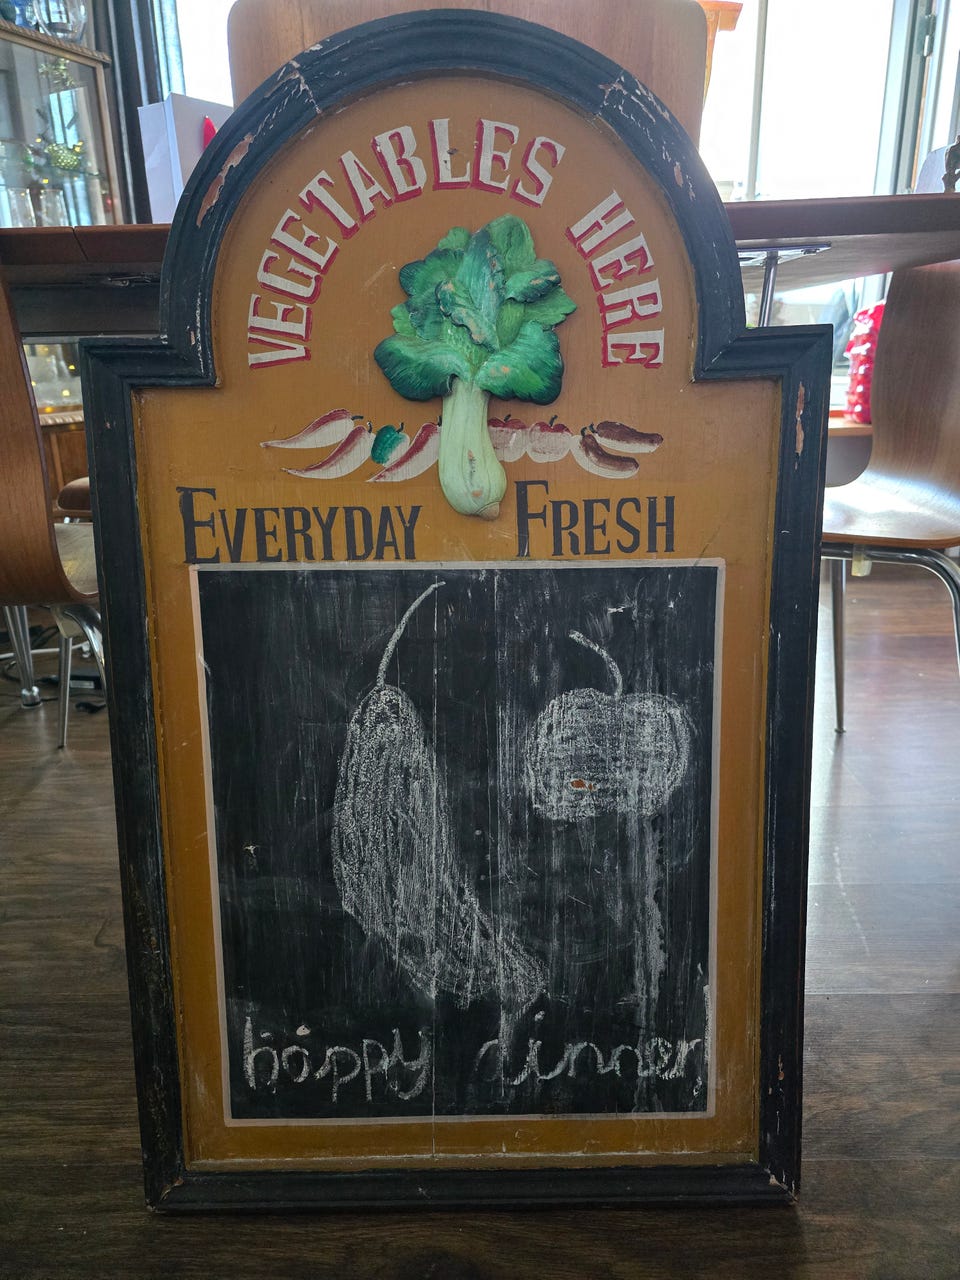 VEGETABLES HERE
EVERYDAY FRESH
happy dinner